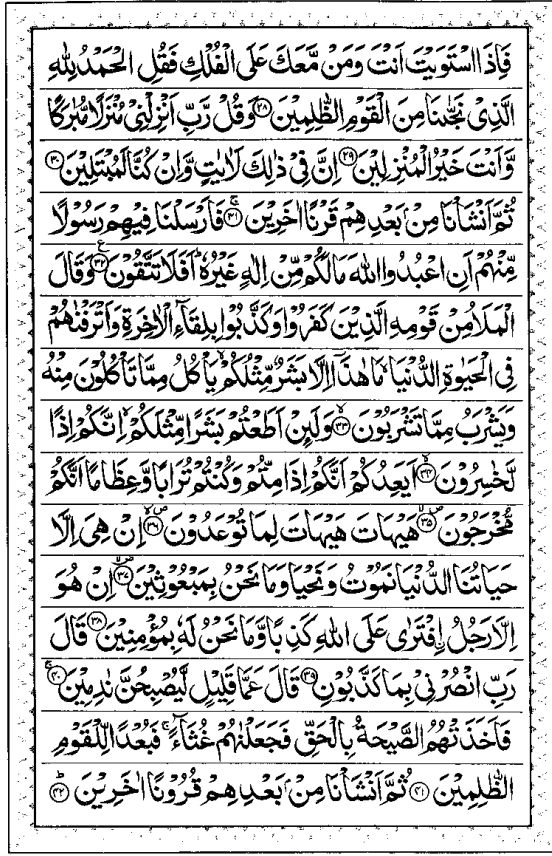 فَاِذَا اسْتَوَيْتَ اَنْتَ وَمَنْ مَّعَكَ عَلَى الْفُلْكِ فَقُلِ الْحَمْدُ لِلّٰهِ
الَّذِىْ نَجّٰىنَا مِنَ الْقَوْمِ الظّٰلِمِيْنَ ۝۲۸ وَقُلْ رَّبِّ اَنْزِلْنِىْ مُنْزَلًا مُّبٰرَكًا
وَّاَنْتَ خَيْرُ الْمُنْزِلِيْنَ ۝۲۹ اِنَّ فِىْ ذٰلِكَ لَاٰيٰتٍ وَّاِنْ كُنَّا لَمُبْتَلِيْنَ ۝۳۰
ثُمَّ اَنْشَاْنَا مِنْۢ بَعْدِهِمْ قَرْنًا اٰخَرِيْنَ ۝۳۱ۚ فَاَرْسَلْنَا فِيْهِمْ رَسُوْلًا
مِّنْهُمْ اَنِ اعْبُدُوا اللّٰهَ مَا لَكُمْ مِّنْ اِلٰهٍ غَيْرُهٗ ؕ اَفَلَا تَتَّقُوْنَ ۝۳۲ع وَقَالَ
الْمَلَاُ مِنْ قَوْمِهِ الَّذِيْنَ كَفَرُوْا وَكَذَّبُوْا بِلِقَآءِ الْاٰخِرَةِ وَاَتْرَفْنٰهُمْ
فِى الْحَيٰوةِ الدُّنْيَا ۙ مَا هٰذَاۤ اِلَّا بَشَرٌ مِّثْلُكُمْ ۙ يَاْكُلُ مِمَّا تَاْكُلُوْنَ مِنْهُ
وَيَشْرَبُ مِمَّا تَشْرَبُوْنَ ۝۳۳ۙ وَلَئِنْ اَطَعْتُمْ بَشَرًا مِّثْلَكُمْ ۙ اِنَّكُمْ اِذًا
لَّخٰسِرُوْنَ ۝۳۴ۙ اَيَعِدُكُمْ اَنَّكُمْ اِذَا مِتُّمْ وَكُنْتُمْ تُرَابًا وَّعِظَامًا اَنَّكُمْ
مُّخْرَجُوْنَ ۝۳۵ۙ هَيْهَاتَ هَيْهَاتَ لِمَا تُوْعَدُوْنَ ۝۳۶ۙ اِنْ هِىَ اِلَّا
حَيَاتُنَا الدُّنْيَا نَمُوْتُ وَنَحْيَا وَمَا نَحْنُ بِمَبْعُوْثِيْنَ ۝۳۷ۙ اِنْ هُوَ
اِلَّا رَجُلُ ۨافْتَرٰى عَلَى اللّٰهِ كَذِبًا وَّمَا نَحْنُ لَهٗ بِمُؤْمِنِيْنَ ۝۳۸ قَالَ
رَبِّ انْصُرْنِىْ بِمَا كَذَّبُوْنِ ۝۳۹ قَالَ عَمَّا قَلِيْلٍ لَّيُصْبِحُنَّ نٰدِمِيْنَ ۝۴۰ۚ
فَاَخَذَتْهُمُ الصَّيْحَةُ بِالْحَقِّ فَجَعَلْنٰهُمْ غُثَآءً ۚ فَبُعْدًا لِّلْقَوْمِ
الظّٰلِمِيْنَ ۝۴۱ ثُمَّ اَنْشَاْنَا مِنْۢ بَعْدِهِمْ قُرُوْنًا اٰخَرِيْنَ ۝۴۲ؕ